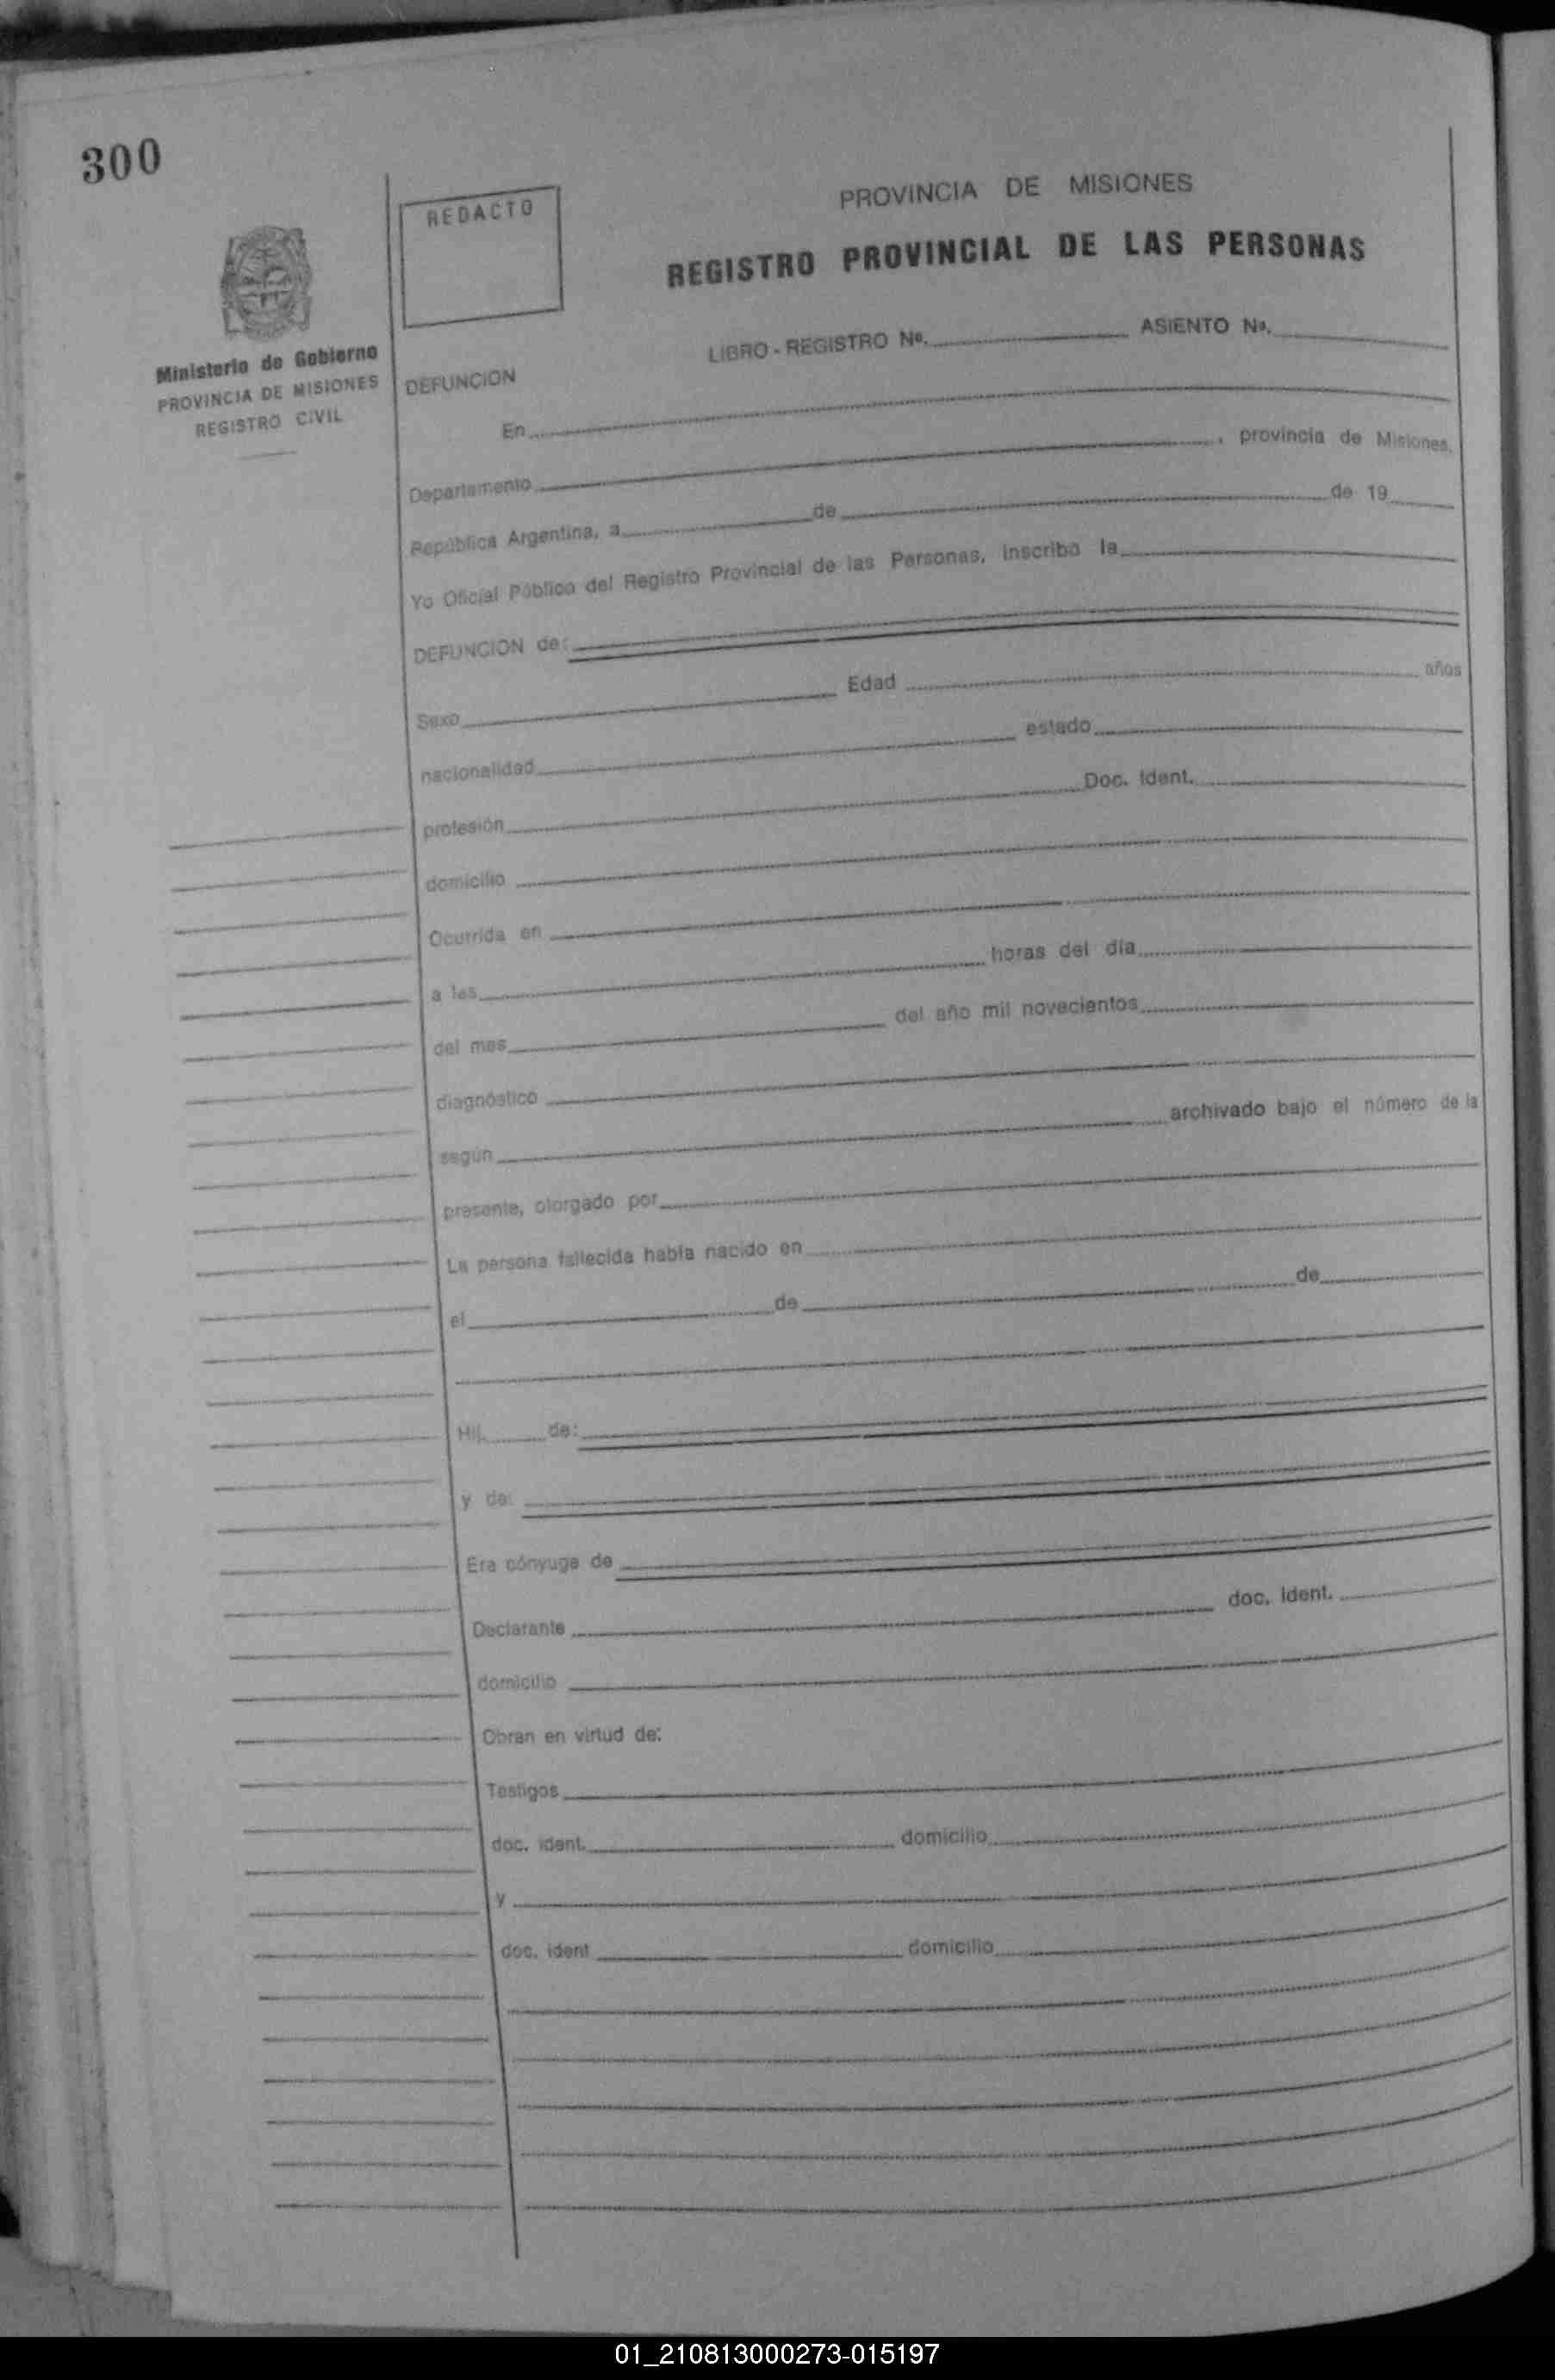 300
REDACTO
PROVINCIA DE MISIONES
REGISTRO PROVINCIAL DE LAS PERSONAS
Ministerio de Gobierno
PROVINCIA DE MISIONES
REGISTRO CIVIL
LIBRO - REGISTRO Nº. ASIENTO Nº.
DEFUNCION
En
Departamento , provincia de Misiones,
República Argentina, a de de 19
Yo Oficial Público del Registro Provincial de las Personas, inscribo la
DEFUNCION de:
Sexo Edad años
nacionalidad estado
profesión Doc. Ident.
domicilio
Ocurrida en
a las horas del día
del mes del año mil novecientos
diagnóstico
según archivado bajo el número de la
presente, otorgado por
La persona fallecida había nacido en
el de de
Hij de:
y de:
Era cónyuge de
Declarante doc. ident.
domicilio
Obran en virtud de:
Testigos
doc. ident. domicilio
y
doc. ident domicilio
01_210813000273-015197